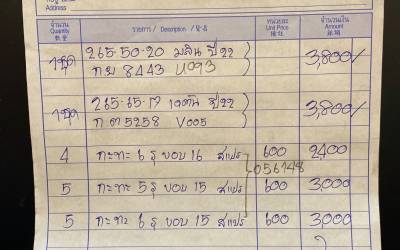 Address
จำนวน รายการ / Description / 貨名 หน่วยละ จำนวนเงิน
Quantity Unit Price Amount
數量
1ชุด 265-50-20 ปี22 3,800/-
8443 U093
1ชุด 265-65-17 ปี22 3,800/-
5258 V005
4 กะทะ 6 รู ขอบ 16 สแปร์ 600 2,400
056148
5 กะทะ 5 รู ขอบ 15 สแปร์ 600 3,000
5 กะทะ 6 รู ขอบ 15 สแปร์ 600 3,000